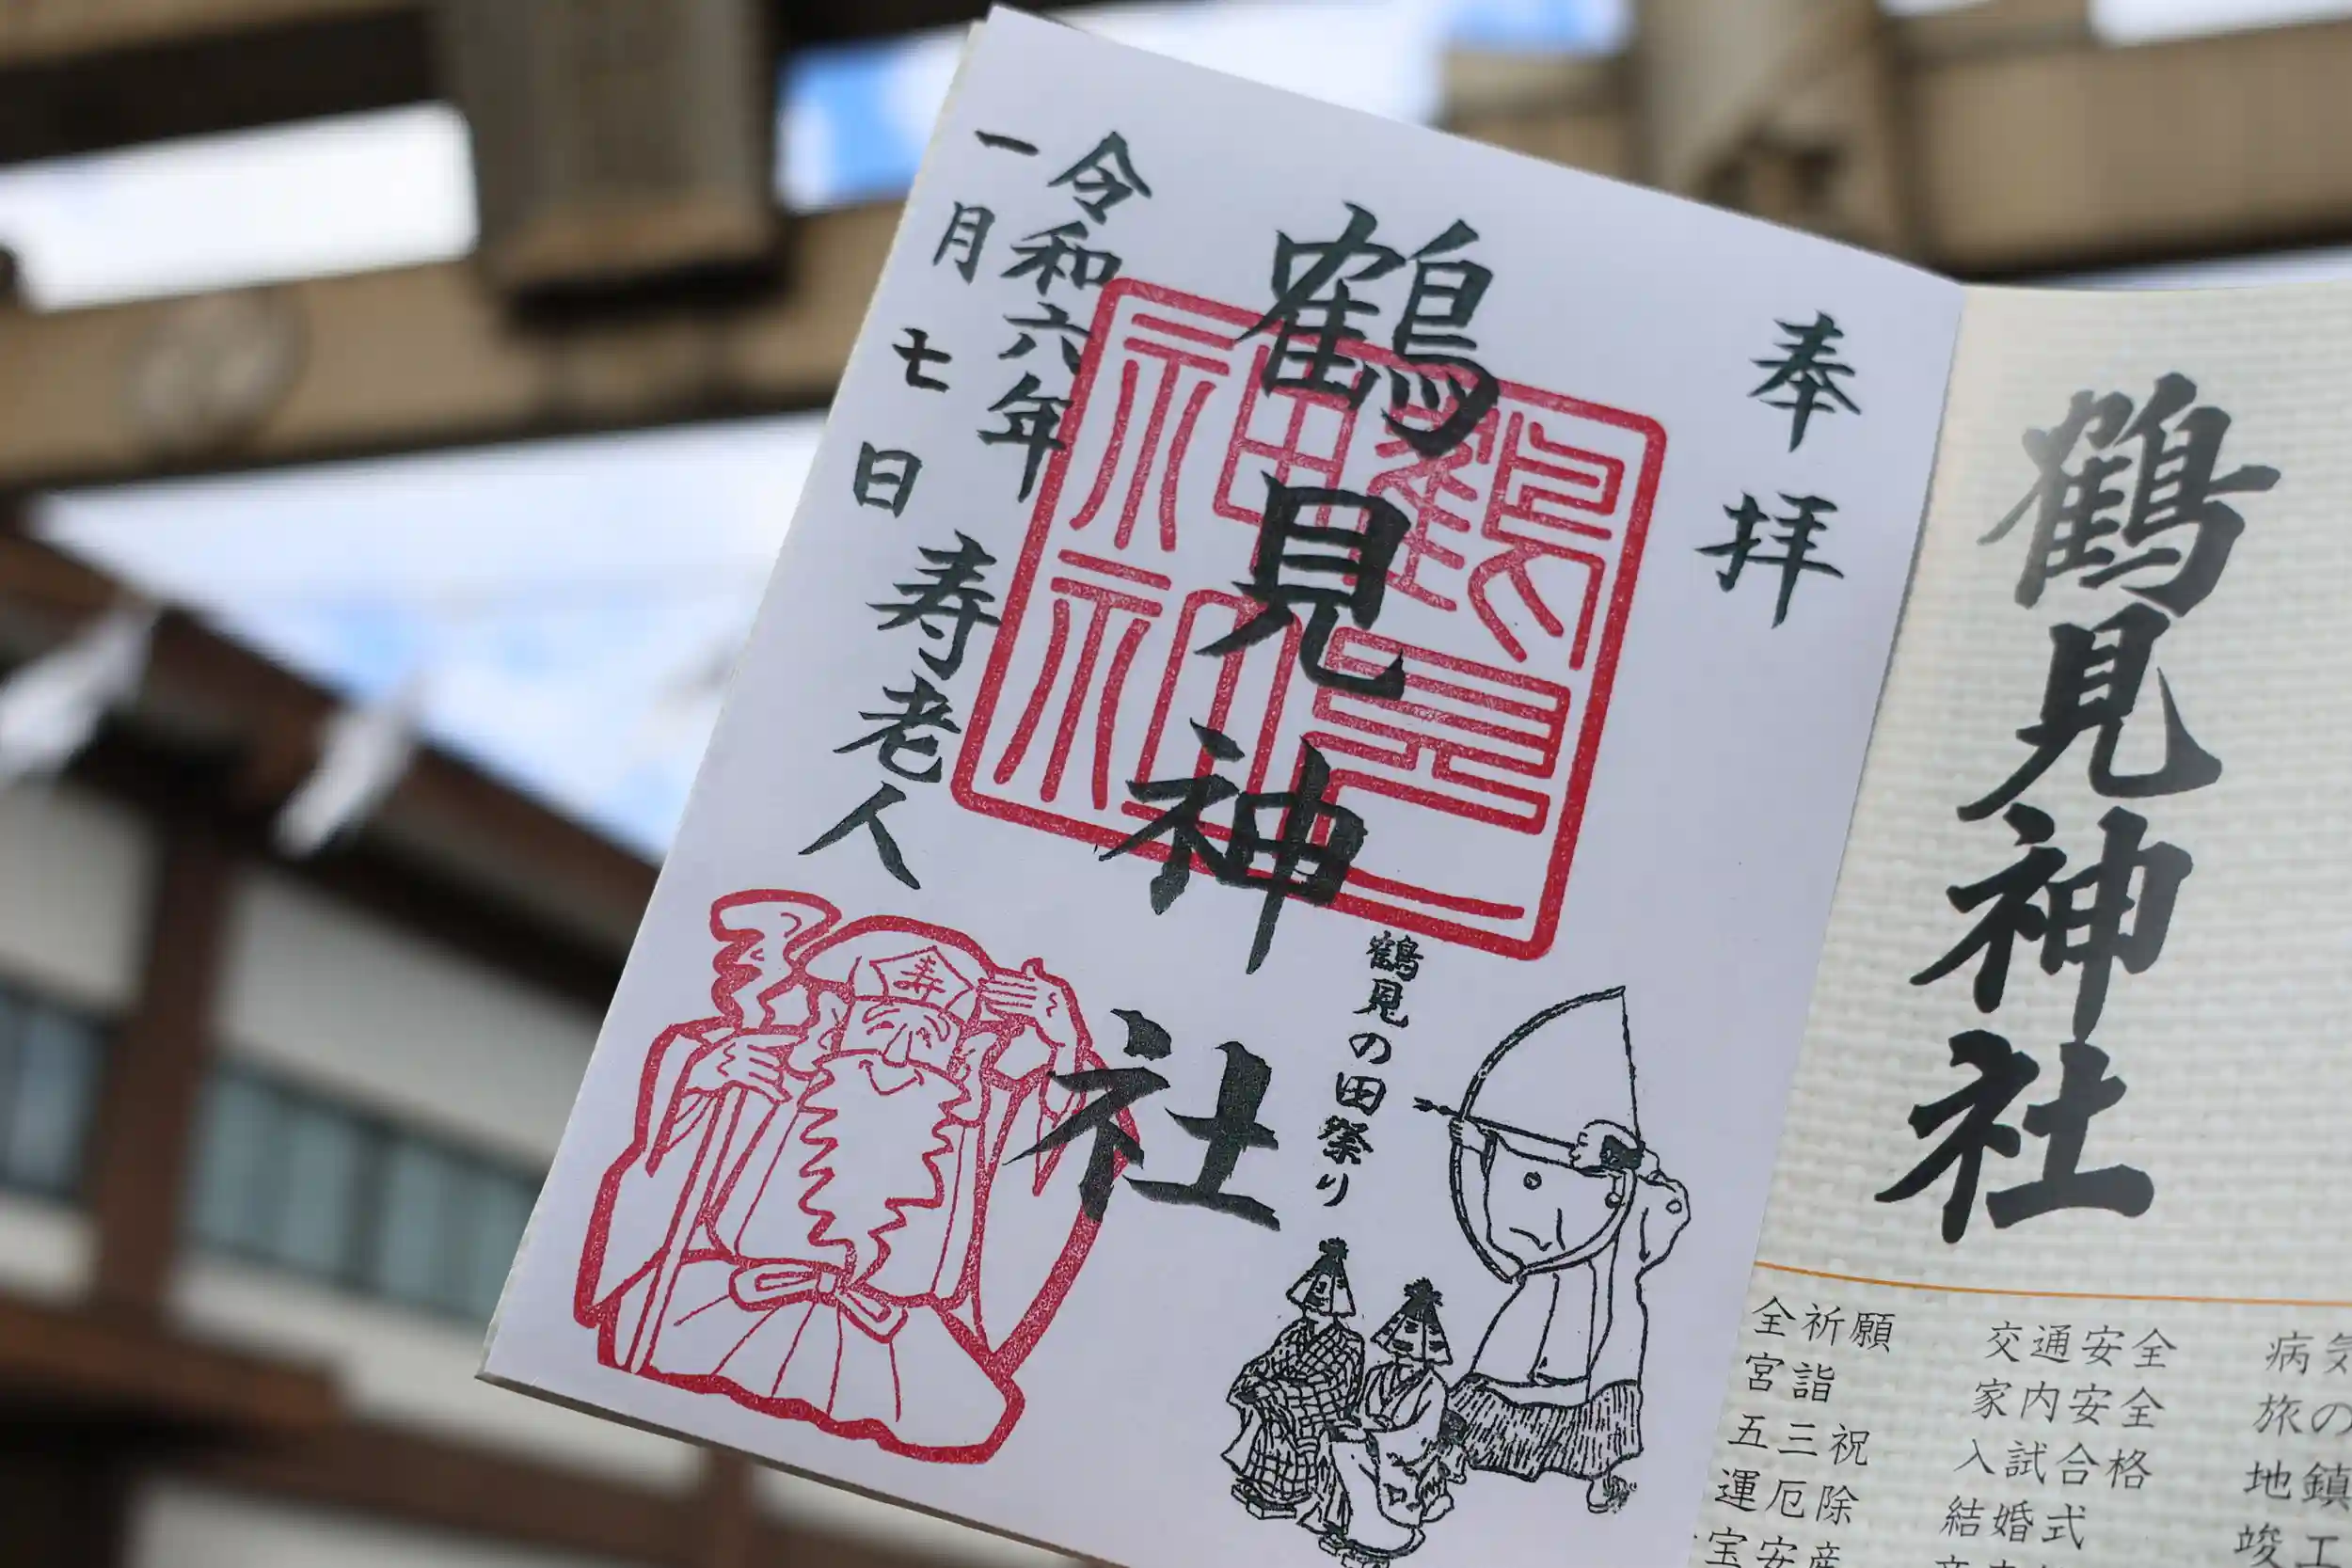 鶴見神社
病気
旅の
地鎮
竣工
交通安全
家内安全
入試合格
結婚式
全祈願
宮詣
五三祝
運厄除
宝安産
奉拝
鶴見神社
鶴見神社
鶴見の田祭り
令和六年
一月七日
寿老人
寿